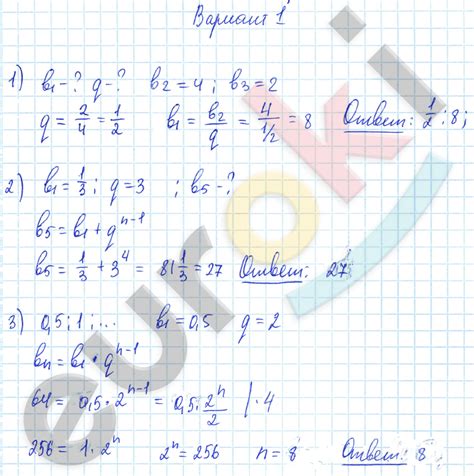 Вариант 1
1) b₁-? q-? b₂=4; b₃=2
q = 2/4 = 1/2 b₁ = b₂/q = 4/1/2 = 8 Ответ: 1/2; 8;
2) b₁ = 1/3; q=3 ; b₅-?
b₅ = b₁ + qⁿ⁻¹
b₅ = 1/3 + 3⁴ = 81 1/3 = 27 Ответ: 27
3) 0,5; 1; ... b₁=0,5 q=2
bₙ = b₁ · qⁿ⁻¹
64 = 0,5 · 2ⁿ⁻¹ = 0,5 · 2ⁿ/2 / · 4
256 = 1 · 2ⁿ 2ⁿ = 256 n = 8 Ответ: 8
euroki